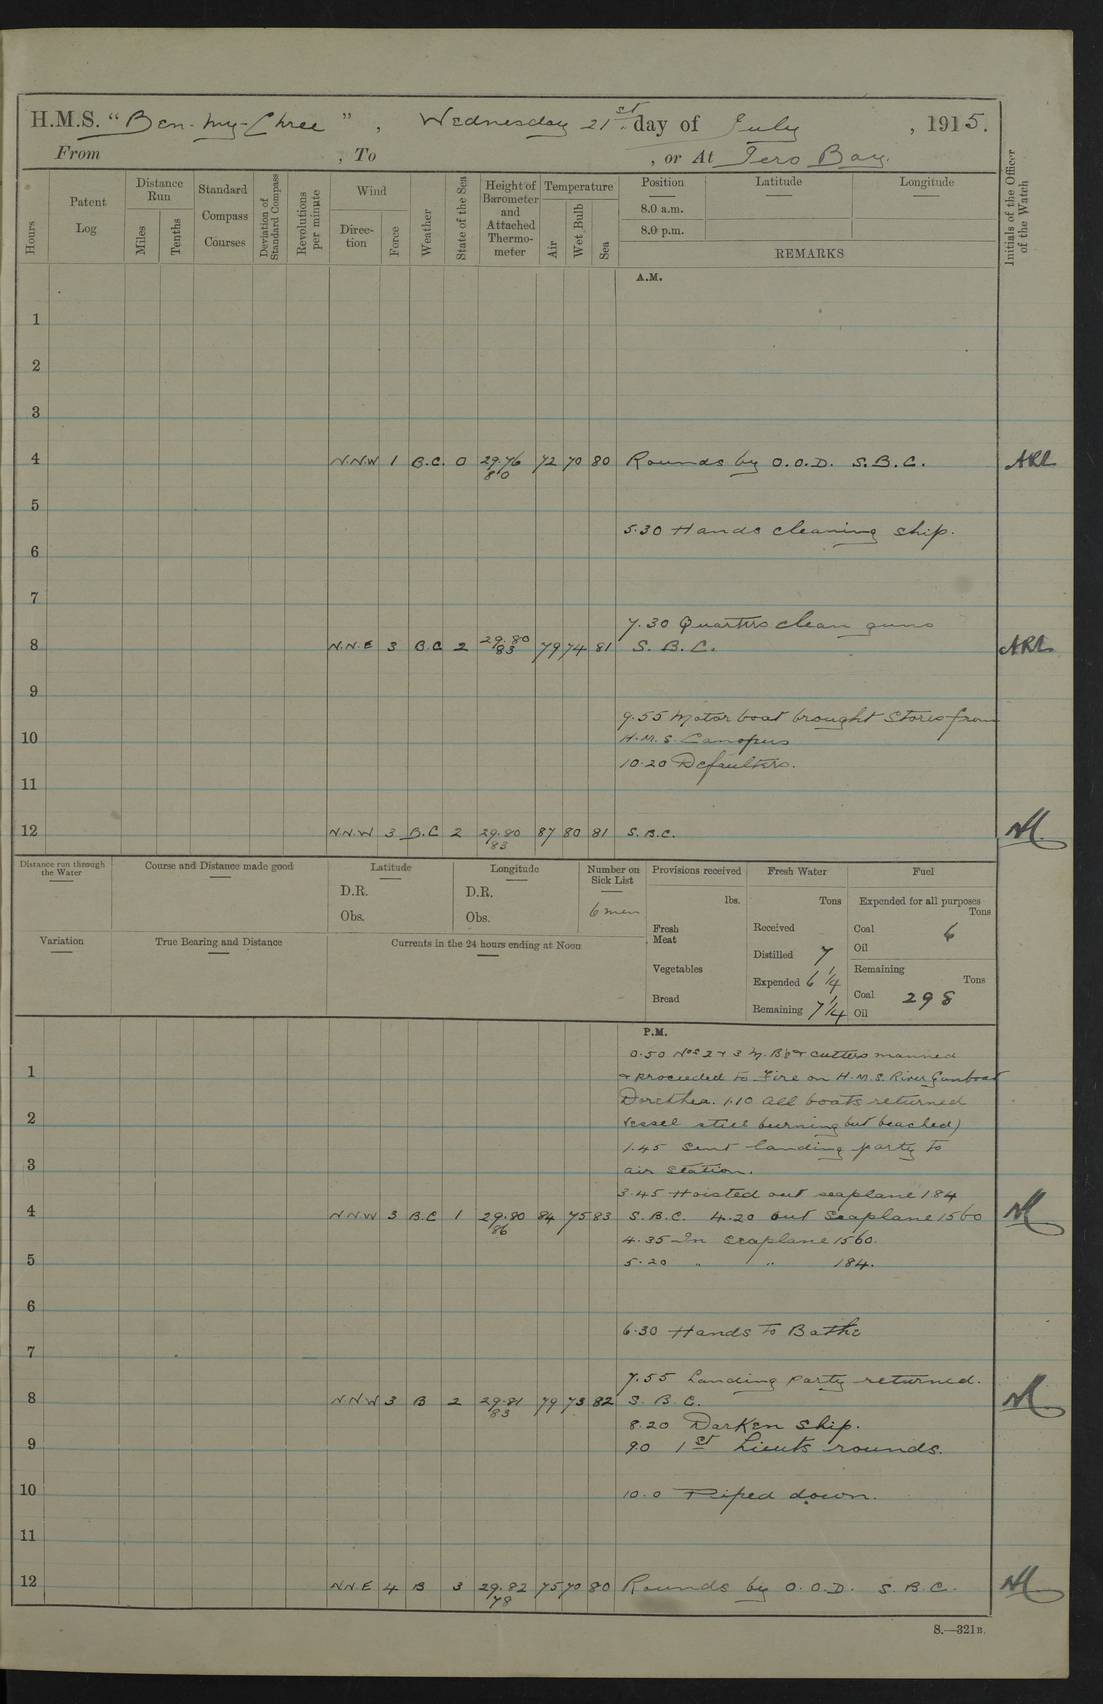 H.M.S. "Ben-my-Chree", Wednesday 21st day of July, 1915.
From , To , or At Iero Bay.
Hours
Patent Log
Distance Run
Miles
Tenths
Standard Compass Courses
Deviation of Standard Compass
Revolutions per minute
Wind
Direction
Force
Weather
State of the Sea
Height of Barometer and Attached Thermometer
Temperature
Air
Wet Bulb
Sea
Position
8.0 a.m.
8.0 p.m.
Latitude
Longitude
REMARKS
Initials of the Officer of the Watch
A.M.
1
2
3
4 N.N.W 1 B.C. 0 29.76 80 72 70 80 Rounds by O.O.D. S.B.C. ARL
5
5.30 Hands cleaning ship.
6
7
7.30 Quarters clean guns
8 N.N.E 3 B.C 2 29.80 83 79 74 81 S.B.C. ARL
9
9.55 Motor boat brought stores from
10 H.M.S. Canopus
10.20 Defaulters.
11
12 N.N.W 3 B.C 2 29.80 83 87 80 81 S.B.C.
Distance run through the Water
Course and Distance made good
Latitude
D.R.
Obs.
Longitude
D.R.
Obs.
Number on Sick List
6 men
Provisions received
lbs.
Fresh Meat
Vegetables
Bread
Fresh Water
Tons
Received
Distilled 7
Expended 6 1/4
Remaining 71/4
Fuel
Expended for all purposes
Tons
Coal 6
Oil
Remaining
Tons
Coal 298
Oil
Variation
True Bearing and Distance
Currents in the 24 hours ending at Noon
P.M.
0.50 Nos 2 & 3 M.Bs & cutters manned
1 & proceeded to Fire on H.M.S. River Gunboat
Dorethea. 1.10 all boats returned
2 vessel still burning but beached)
1.45 Sent landing party to
3 air station.
3.45 Hoisted out seaplane 184
4 N.N.W 3 B.C 1 29.80 86 84 75 83 S.B.C. 4.20 out Seaplane 1560
4.35 In seaplane 1560.
5 5.20 " " 184.
6
6.30 Hands to Bathe
7
7.55 Landing party returned.
8 N.N.W 3 B 2 29.81 83 79 73 82 S.B.C.
8.20 Darken ship.
9 9.0 1st Lieuts rounds.
10 10.0 Piped down.
11
12 N.N.E 4 B 3 29.82 78 75 70 80 Rounds by O.O.D. S.B.C.
S.—321B.